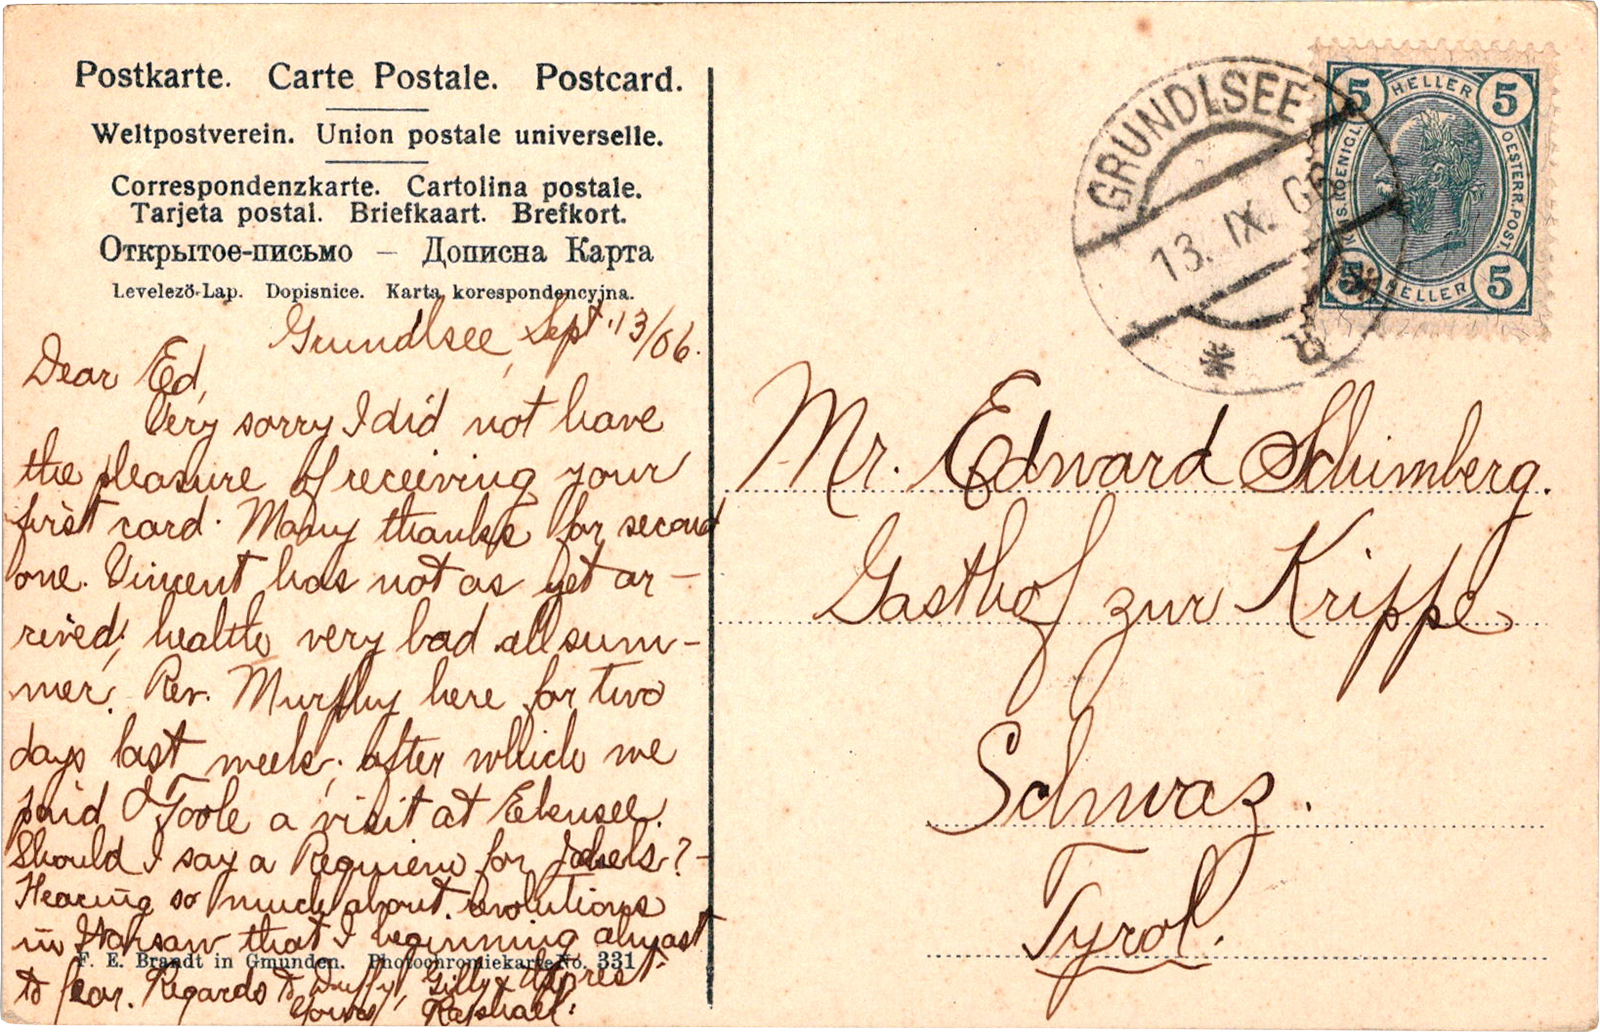 Postkarte. Carte Postale. Postcard.
Weltpostverein. Union postale universelle.
Correspondenzkarte. Cartolina postale.
Tarjeta postal. Briefkaart. Brefkort.
Открытое-письмо — Дописна Карта
Levelezö-Lap. Dopisnice. Karta korespondencyjna.
Grundlsee, Sept. 13/06.
Dear Ed,
Very sorry I did not have
the pleasure of receiving your
first card. Many thanks for second
one. Vincent has not as yet ar-
rived; health very bad all sum-
mer. Rev. Murphy here for two
days last week; after which we
paid O'Toole a visit at Ebensee.
Should I say a Requiem for ?-
Hearing so much about revolutions
in Warsaw that I beginning almost
to fear. Regards to Duffy, Gilly &
Yours, Raphael.
F. E. Brandt in Gmunden. Photochromiekarte No. 331
GRUNDLSEE
13. IX. 06
5 HELLER 5
K.K. OESTERR. POST.
5 HELLER 5
Mr. Edward Schimberg.
Gasthof zur Krippe
Schwaz.
Tyrol.